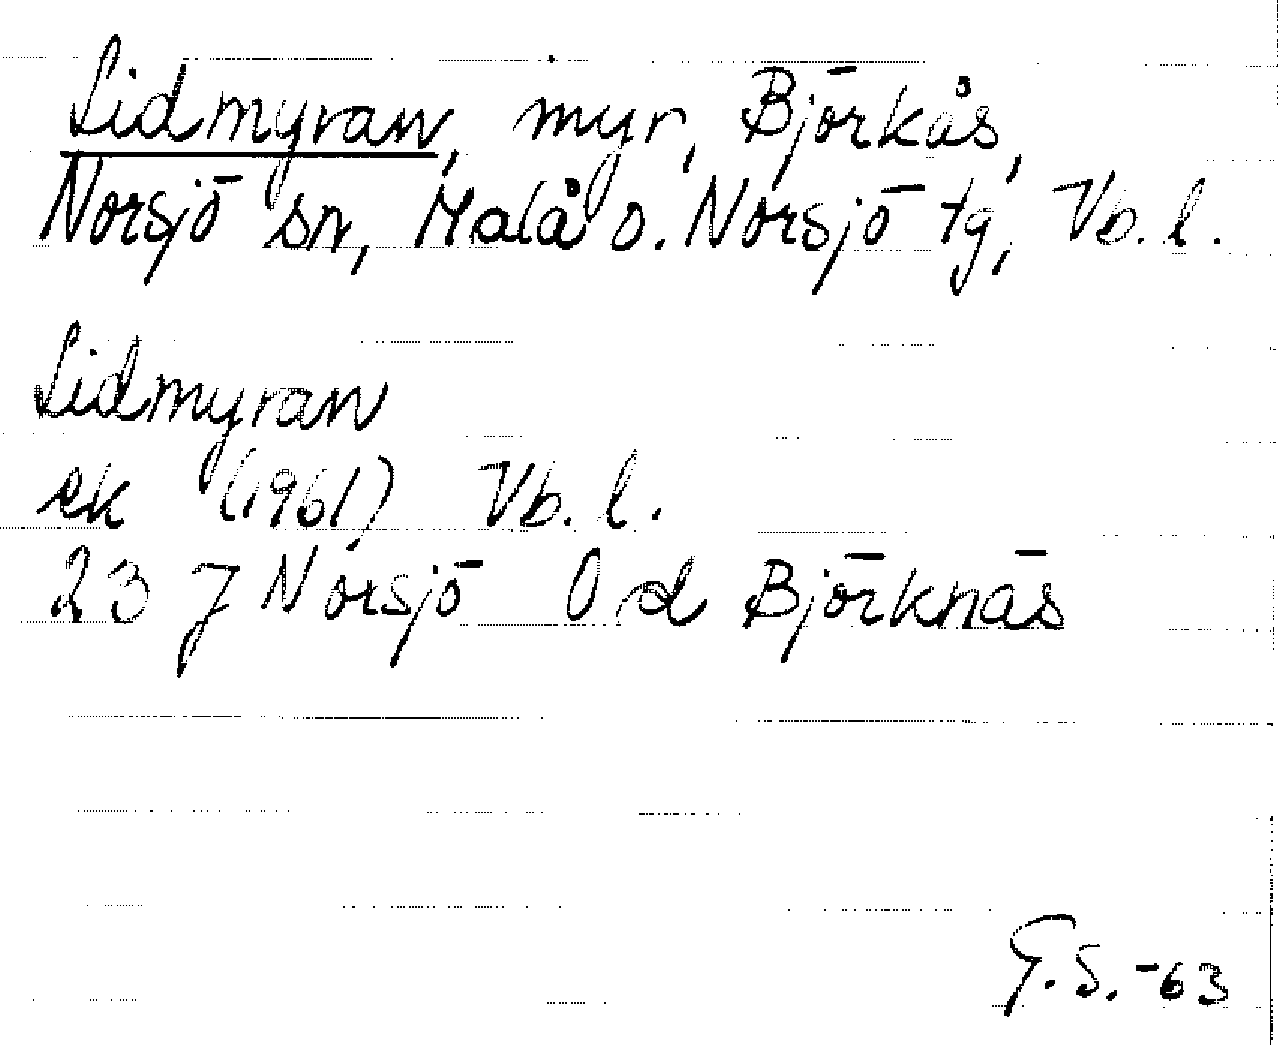 Lidmyran, myr, Björkås,
Norsjö sn, Malå o. Norsjö tg, Vb. l.
Lidmyran
ek (1961) Vb. l.
23 J Norsjö 0 d Björknäs
G. S. -63